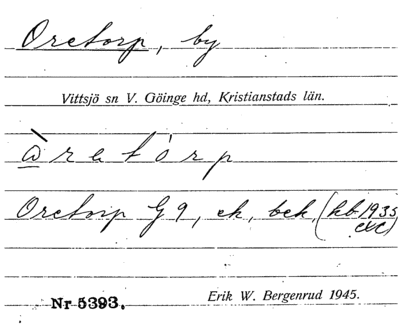 Oretorp, by
Vittsjö sn V. Göinge hd, Kristianstads län.
ò̱retórp
Oretorp G 9, ek, bek, (kb 1935
exc)
Nr 5393. Erik W. Bergenrud 1945.